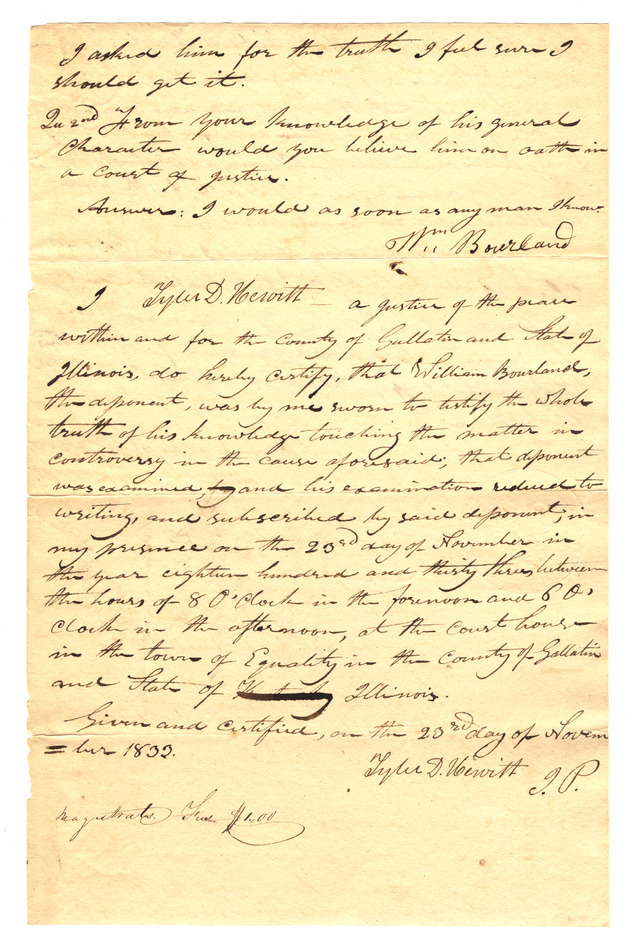 I asked him for the truth I feel sure I
should get it.
Qu 2nd From your knowledge of his general
Character would you believe him on oath in
a court of justice.
Answer: I would as soon as any man I know.
Wm Bourland
I Tyler D. Hewitt — a justice of the peace
within and for the County of Gallatin and State of
Illinois, do hereby certify, that William Bourland,
the deponent, was by me sworn to testify the whole
truth of his knowledge touching the matter in
controversy in the cause aforesaid; that deponent
was examined, and his examination reduced to
writing, and subscribed by said deponent, in
my presence on the 23rd day of November in
the year eighteen hundred and thirty three between
the hours of 8 O'Clock in the forenoon and 6 O'
clock in the afternoon, at the court house
in the town of Equality in the county of Gallatin
and State of Illinois.
Given and certified, on the 23rd day of Novem
=ber 1833.
Tyler D. Hewitt J. P.
Magistrates Fee $1,00